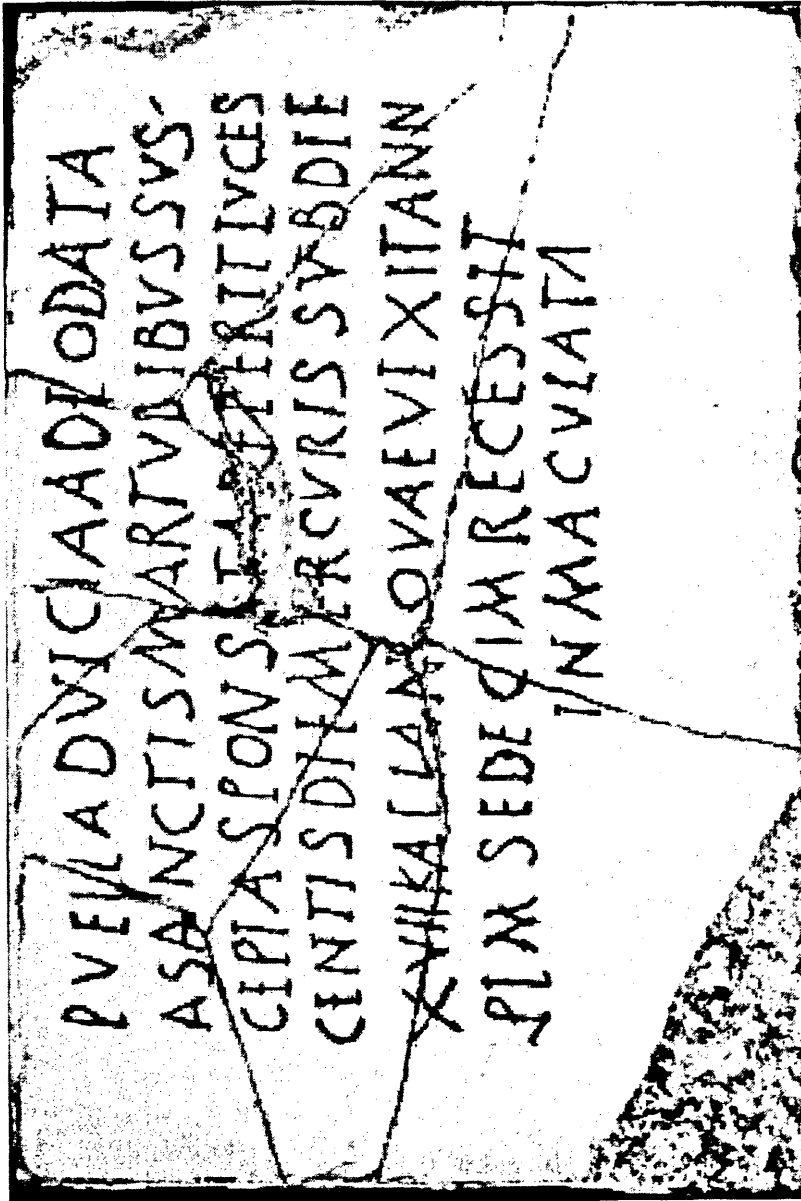 PVELLA DVICIA A DEO DATA
A SANCTIS MARTVRIBVS SVS
CEPTA SPONSE TAR PETERIT LVCES
CENTIS DIE MERCVRIS SVB DIE
XVIII KAL IAN QVAE VIXIT ANN
PLM SEDECIM RECESSIT
INMACVLATA